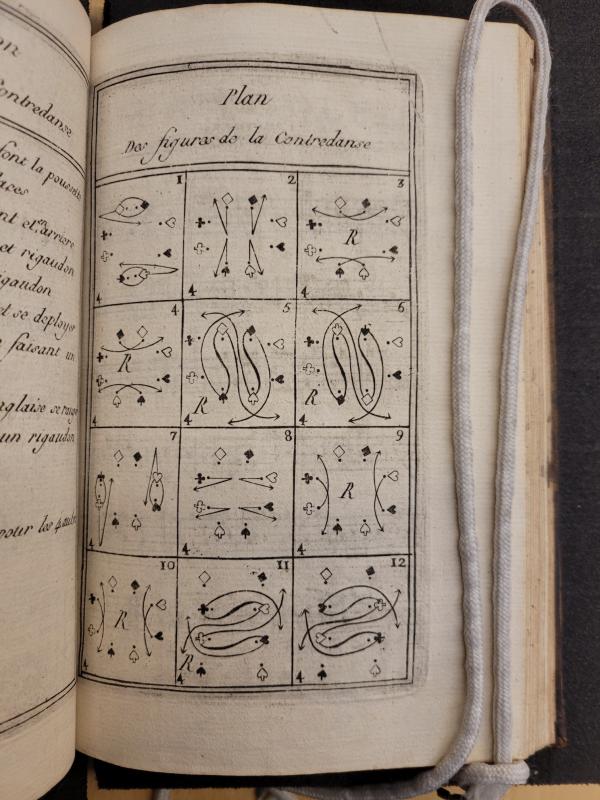 on
Contredanse
font la poussette
laces
nt et en arriere
et rigaudon
igaudon
et se deployer
faisant un
nglaise se
un rigaudon
pour les 4 autres
Plan
Des figures de la Contredanse
1 2 3
R
4 4 4
4 5 6
R R R
4 4 4
7 8 9
R
4 4 4
10 11 12
R R
4 4 4